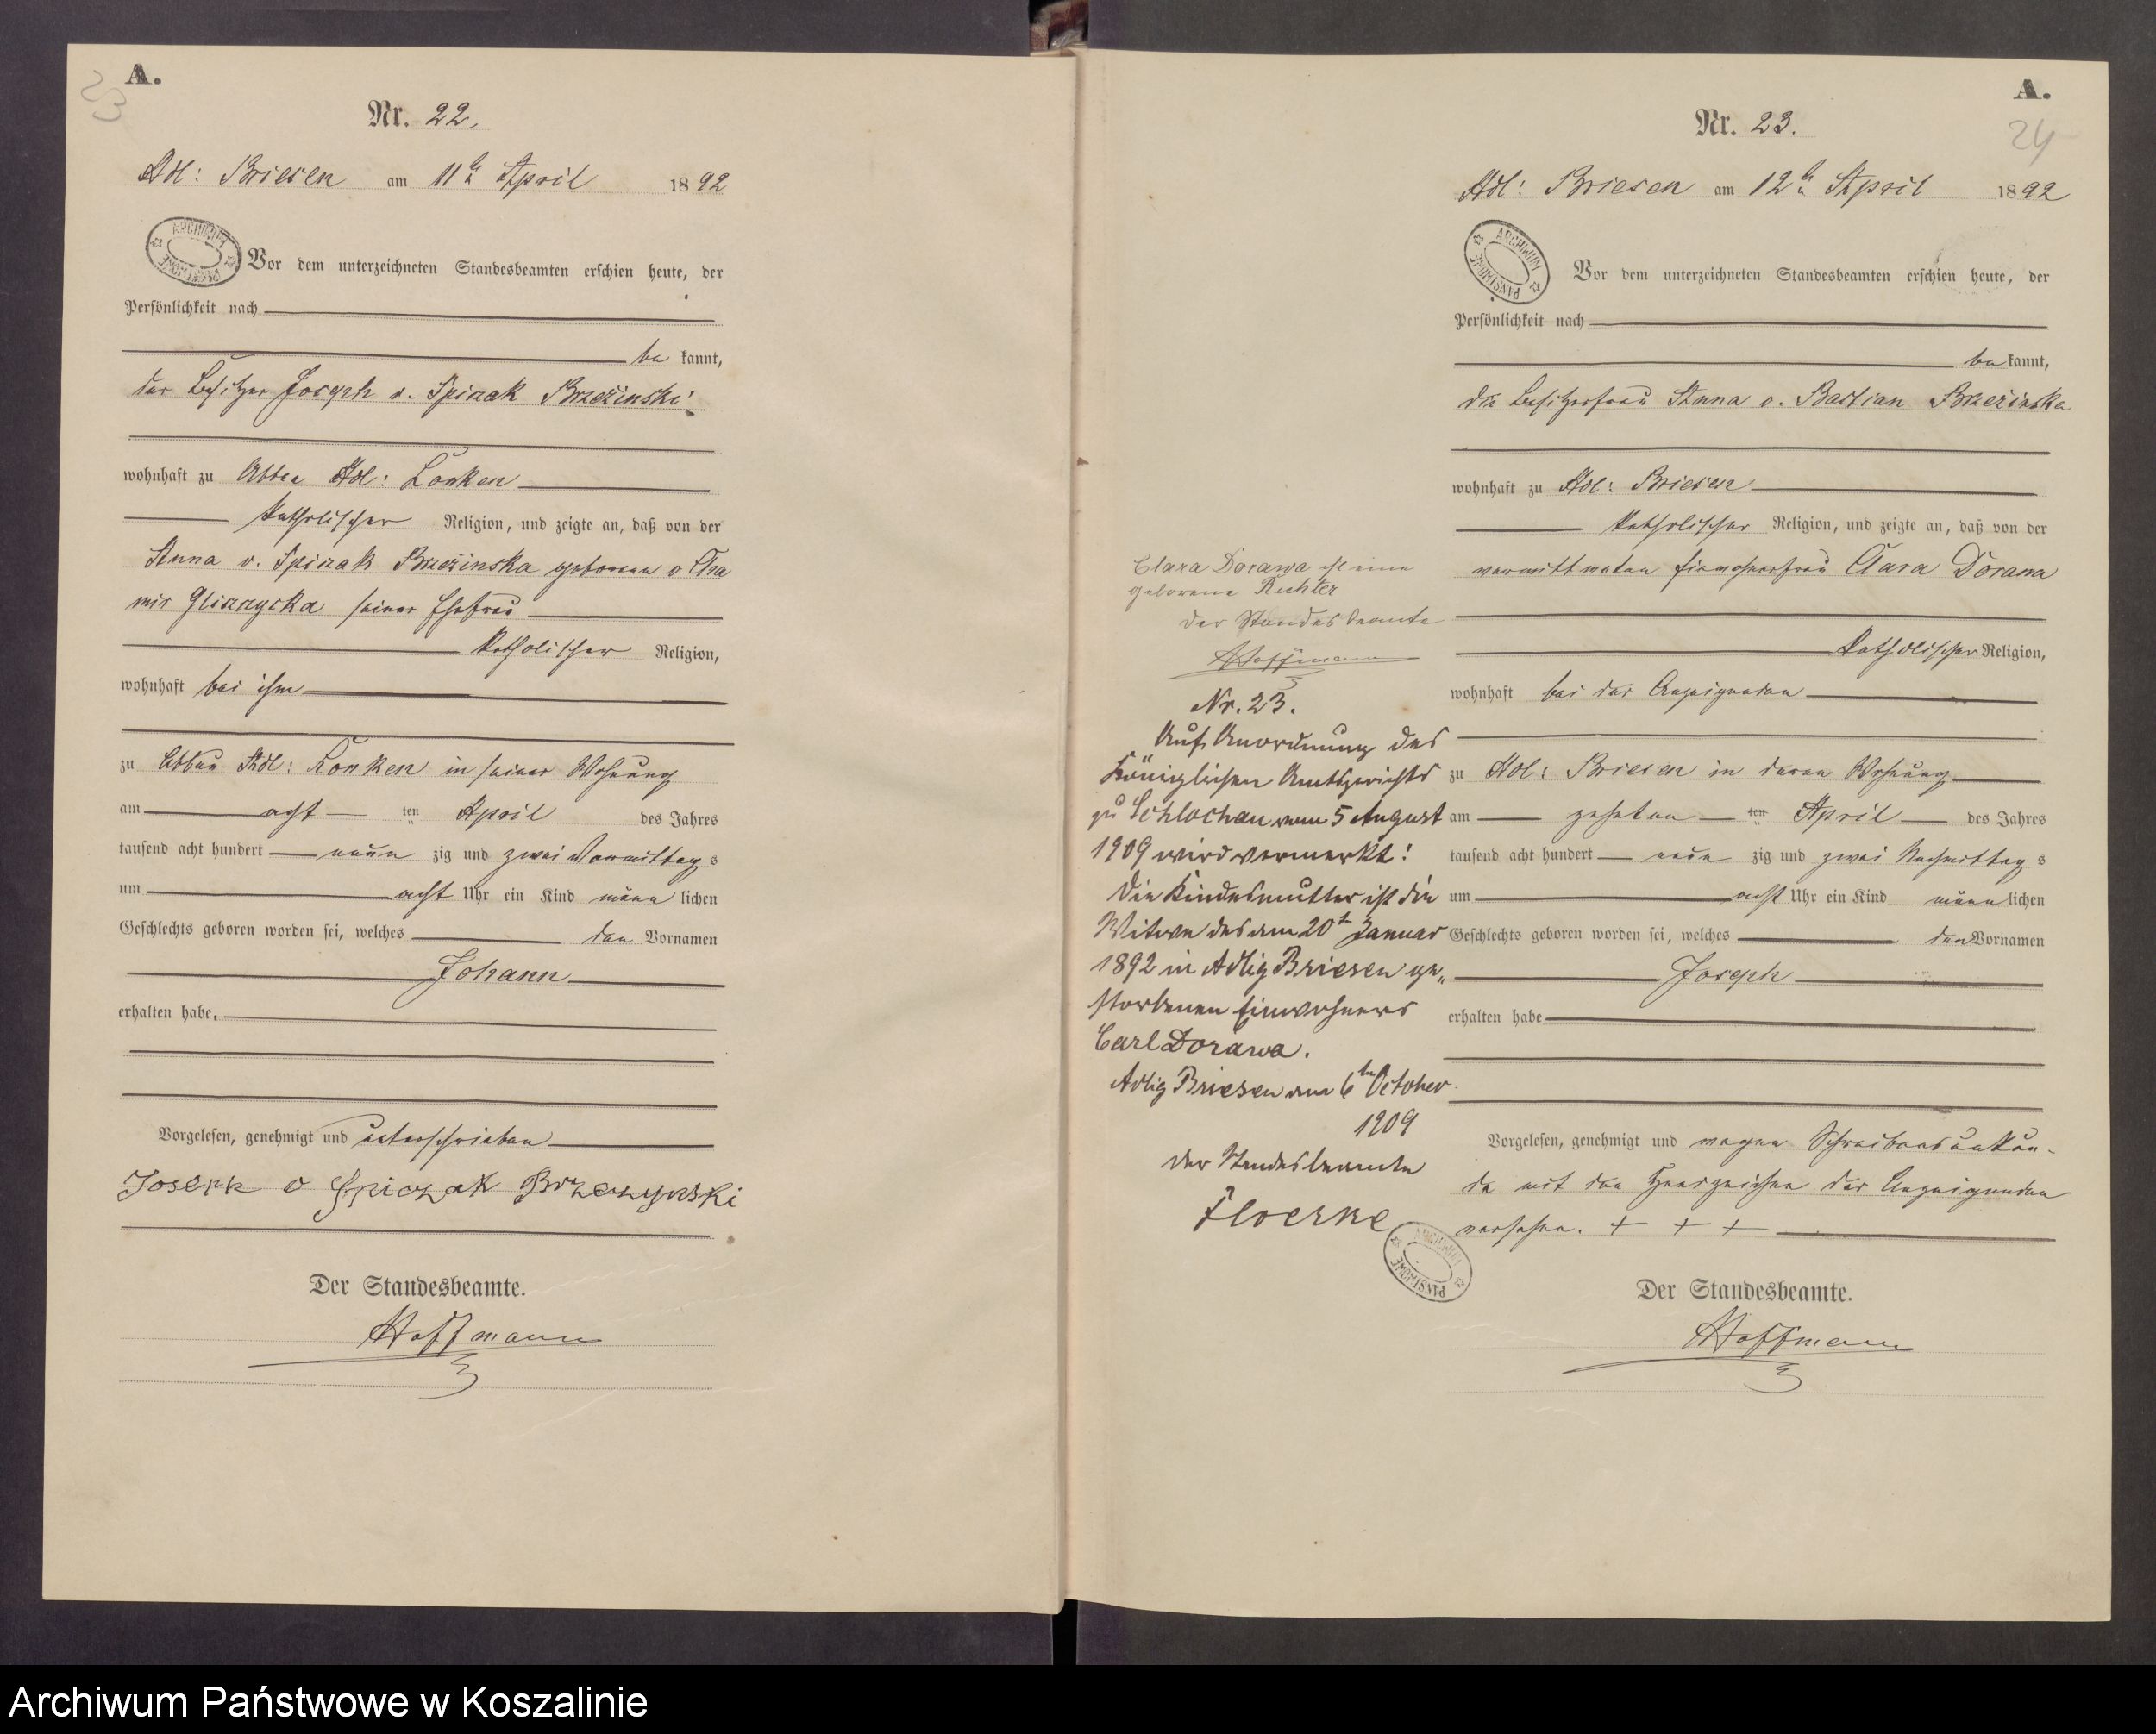 23
A.
Nr. 22.
Adl: Briesen am 11te April 1892
ARCHIWUM PAŃSTWOWE
Vor dem unterzeichneten Standesbeamten erschien heute, der
Persönlichkeit nach
be kannt,
der Besitzer Joseph v. Spiczak Brzezinski
wohnhaft zu Abbau Adl: Lonken
katholischer Religion, und zeigte an, daß von der
Anna v. Spiczak Brzezinska geborene v
seiner Ehefrau
katholischer Religion,
wohnhaft bei ihm
zu Abbau Adl: Lonken in seiner Wohnung
am acht ten April des Jahres
tausend acht hundert neun zig und zwei Vormittag s
um acht Uhr ein Kind männ lichen
Geschlechts geboren worden sei, welches den Vornamen
Johann
erhalten habe.
Vorgelesen, genehmigt und unterschrieben
Joserk v Spiczak Brzezynski
Der Standesbeamte.
Hoffmann
A.
24
Nr. 23.
Adl: Briesen am 12te April 1892
ARCHIWUM PAŃSTWOWE
Vor dem unterzeichneten Standesbeamten erschien heute, der
Persönlichkeit nach
be kannt,
die Besitzerfrau Anna v. Bastian Brzezinska
wohnhaft zu Adl: Briesen
katholischer Religion, und zeigte an, daß von der
verwittweten Einwohnerfrau Clara Dorawa
katholischer Religion,
wohnhaft bei der Anzeigenden
zu Adl: Briesen in deren Wohnung
am zehnten ten April des Jahres
tausend acht hundert neun zig und zwei Nachmittag s
um acht Uhr ein Kind männ lichen
Geschlechts geboren worden sei, welches den Vornamen
Joseph
erhalten habe
Vorgelesen, genehmigt und wegen Schreibensunkun-
de mit den Handzeichen der Anzeigenden
versehen. + + +
Der Standesbeamte.
Hoffmann
Clara Dorawa ist eine
geborene Richter
Der Standesbeamte
Hoffmann
Nr. 23.
Auf Anordnung des
Königlichen Amtsgerichts
zu Schlochau vom 5 August
1909 wird vermerkt:
Die Kindesmutter ist die
Witwe des am 20ten Januar
1892 in Adlig Briesen ge„
storbenen Einwohners
Carl Dorawa.
Adlig Briesen am 6ten October
1909
Der Standesbeamte
Floerke
ARCHIWUM PAŃSTWOWE
Archiwum Państwowe w Koszalinie